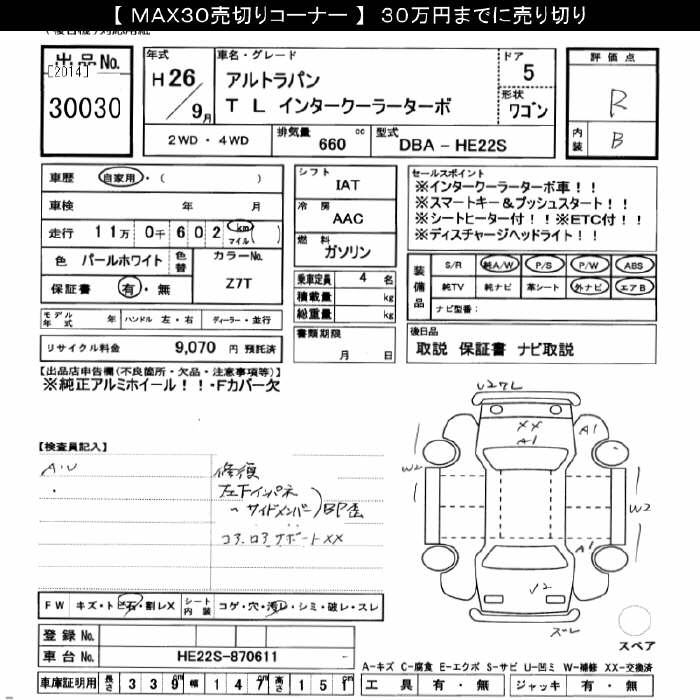 【 MAX30売切りコーナー 】 30万円までに売り切り
出品No.
[2014]
30030
年式
H26/9月
車名・グレード
アルトラパン
TL インタークーラーターボ
ドア
5
形状
ワゴン
評価点
R
内装
B
2WD ・ 4WD
排気量
660 cc
型式
DBA - HE22S
車歴 自家用・( )
車検 年 月
走行 11万 0千 602 km マイル ( )
色 パールホワイト
色替
カラーNo.
Z7T
保証書 有・無
シフト
IAT
冷房
AAC
燃料
ガソリン
乗車定員 4 名
積載量 kg
総重量 kg
セールスポイント
※インタークーラーターボ車!!
※スマートキー&プッシュスタート!!
※シートヒーター付!!※ETC付!!
※ディスチャージヘッドライト!!
装備品
S/R 純A/W P/S P/W ABS
純TV 純ナビ 革シート 外ナビ エアB
ナビ型番:
モデル年式 年 ハンドル 左・右 ディーラー・並行
リサイクル料金 9,070 円 預託済
書類期限
月 日
後日品
取説 保証書 ナビ取説
【出品店申告欄(不良箇所・欠品・注意事項等)】
※純正アルミホイール!!・Fカバー欠
【検査員記入】
A・U
修復
左下インパネ
〜サイドメンバー)BP歪
コアロアサポートXX
U2 スレ
XX
A1
A1
W2
W2
A1
U2
スレ
スペア
FW キズ・トビ石・割レX
シート内装 コゲ・穴・汚レ・シミ・破レ・スレ
登録No.
車台No. HE22S-870611
車庫証明用 長さ 339cm 幅 147cm 高さ 151cm
A-キズ C-腐食 E-エクボ S-サビ U-凹ミ W-補修 XX-交換済
工具 有・無 ジャッキ 有・無